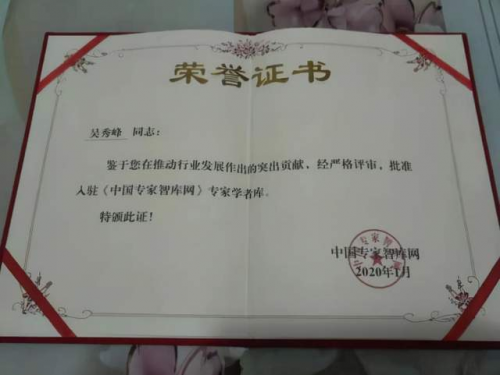 荣誉证书
吴秀峰 同志：
鉴于您在推动行业发展作出的突出贡献，经严格评审，批准
入驻《中国专家智库网》专家学者库。
特颁此证！
中国专家智库网
2020年1月